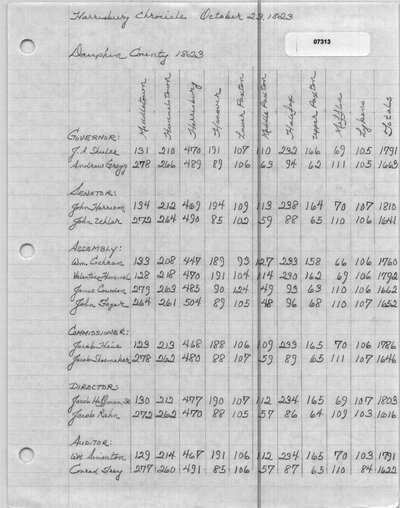 Harrisburg Chronicle October 23, 1823
07313
Dauphin County 1823
Middletown Hummelstown Harrisburg Hanover Lower Paxton Middle Paxton Halifax Upper Paxton Mifflin Lykens Totals
GOVERNOR:
J. A. Shulze 131 210 470 191 107 110 232 166 69 105 1791
Andrew Gregg 278 266 489 89 106 63 94 62 111 105 1663
SENATOR:
John Harrison 134 212 469 194 109 113 238 164 70 107 1810
John 272 264 490 85 102 59 88 65 110 106 1641
ASSEMBLY:
Wm. Cochran 133 208 447 189 93 127 233 158 66 106 1760
Valentine Hummel 128 218 470 191 104 114 230 162 69 106 1792
James Cowden 279 263 485 90 124 49 93 63 110 106 1662
John 264 261 504 89 105 48 96 68 110 107 1652
COMMISSIONER:
Jacob 123 213 468 188 106 109 233 165 70 106 1786
Jacob Shoemaker 278 262 480 88 107 59 89 65 111 107 1646
DIRECTOR:
Jacob Hoffman, Sr. 130 212 477 190 107 112 234 165 69 107 1803
Jacob Rahn 272 262 470 88 105 57 86 64 109 103 1616
AUDITOR:
Wm. Simonton 129 214 467 191 106 112 234 165 70 103 1791
Conrad 277 260 491 85 106 57 87 65 110 84 1622